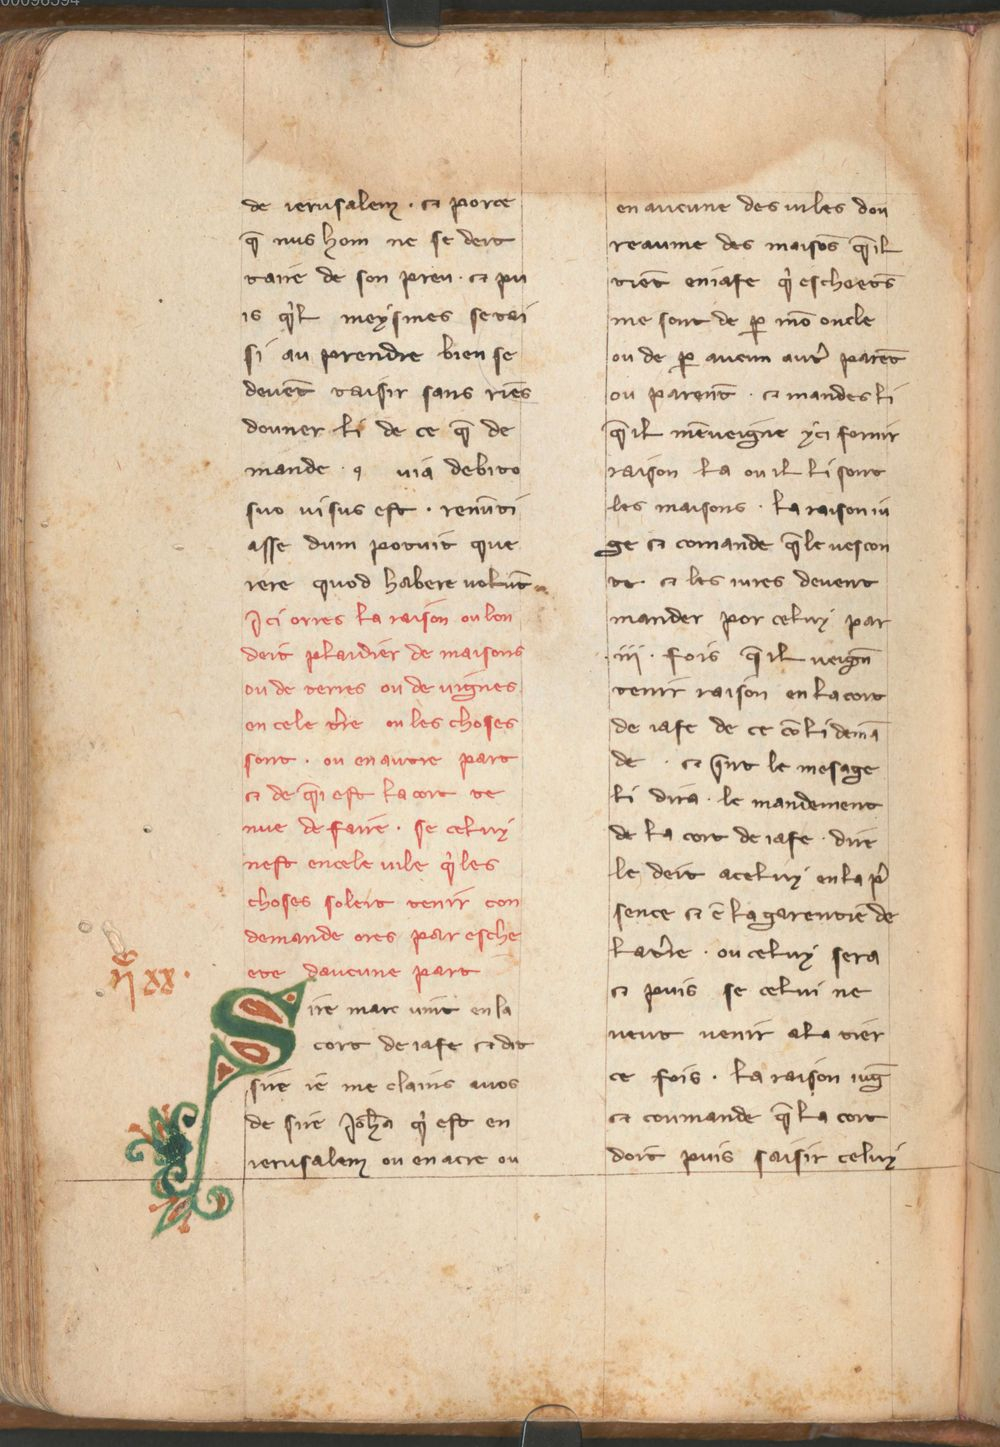 de ierusalem · et porce
q̄ nus hom ne se deit
taire de son preu · et pu
is q'l meysmes se tai
si au prendre bien se
devēt taisir sans riēs
douner li de ce q̄ de
mande · 9 via debito
suo visus est · renūti
asse dum potuit que
rere quod habere volūt
Ici orres la raison ou lon
deit plaidier de maisons
ou de terres ou de vignes
en cele t're ou les choses
sont · ou en autre part
et de q̄i est la cort te
nue de faire · se celuy
nest en cele vile q'les
choses soleit tenir con
demande ores par esche
ete daucune part
Sire marc vint en la
cort de iafe et dit
sire ie me clains a vos
de sire Joh̄a q' est en
ierusalem ou en acre ou
.. xx ·
en aucune des viles dou
reaume des maisōs q̄ il
tiēt en iafe q' escheetēs
me sont de p̱ mō oncle
ou de p̱ aucun aut' parēt
ou parent̄ · et mandes li
q̄ il mēveigne yci fornir
raison la ou il li sont
les maisons · la raison iu
ge et comande q̄ le vescon
te et les iures devent
mander por celuy par
· iii · fois q̄ il veign̄
tenir raison en la cort
de iafe de ce cō li demā
de · et q̄nt le mesage
li dira · le mandement
de la cort de iafe · dire
le deit a celuy en la p'
sence et ē la garentie de
la t're · ou celuy sera
et puis se celui ne
veut venir a la tier
ce fois · la raison iuḡ
et coumande q̄ la cort
doit puis saisir celuy